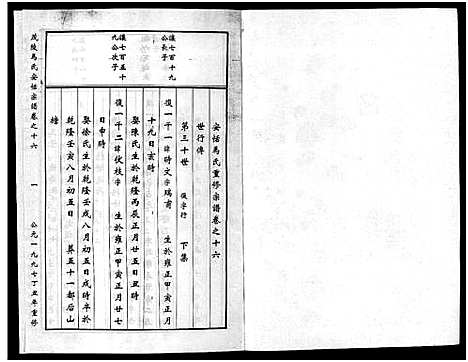 安恬馬氏重修宗譜卷之十六
世行傳
第三十世 復字行 下集
讓七百十九
公長子
復一千一諱時文字瑞甫 生於雍正甲寅正月
十九日亥時
娶陳氏生於乾隆丙辰正月廿五日時
讓七百五十
九公次子
復一千二諱伏枝字 生於雍正甲寅正月廿七
日申時
娶徐氏生於乾隆壬戌八月初五日戌時卒於
乾隆壬寅八月初五日 葬五十一都后山
塘
茂陵馬氏安恬宗譜卷之十六 一 公元一九九七丁丑年重修